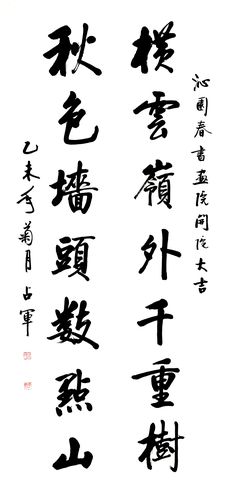 沁園春書畫院開院大吉
橫雲嶺外千重樹
秋色墻頭數點山
乙未年菊月占軍